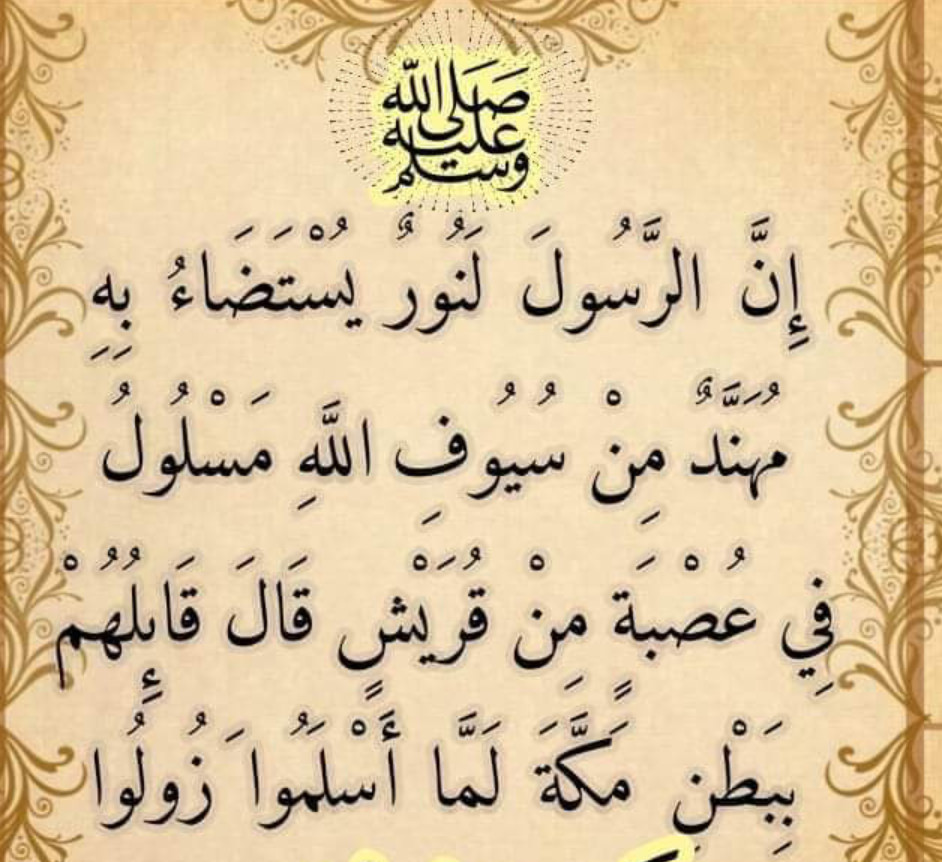 صلى الله عليه وسلم
إِنَّ الرَّسُولَ لَنُورٌ يُسْتَضَاءُ بِهِ
مُهَنَّدٌ مِنْ سُيُوفِ اللَّهِ مَسْلُولُ
فِي عُصْبَةٍ مِنْ قُرَيْشٍ قَالَ قَائِلُهُمْ
بِبَطْنِ مَكَّةَ لَمَّا أَسْلَمُوا زُولُوا